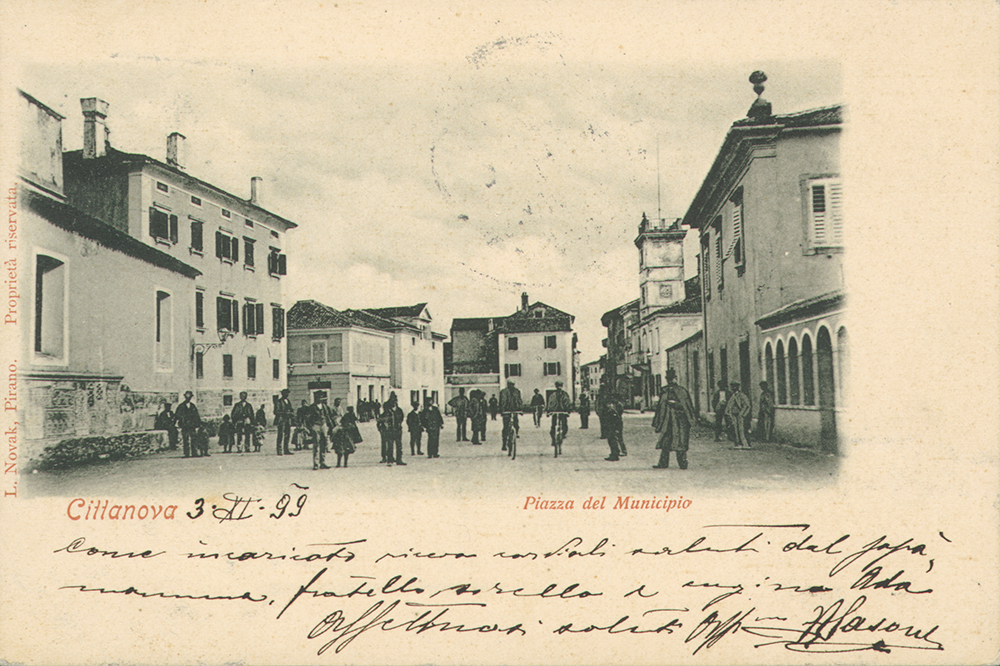 L. Novak, Pirano. Proprietà riservata.
Cittanova 3·XI·99
Piazza del Municipio
Come incaricato riceva cordiali saluti dal papà,
mamma, fratello sorella e cugina Ada
Affettuosi saluti